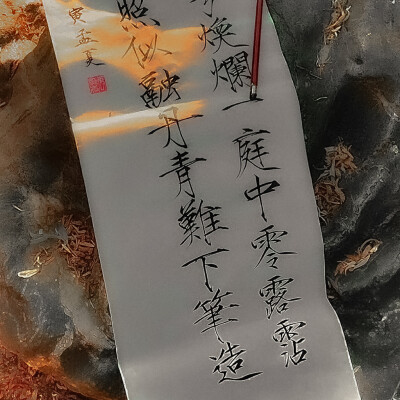 煥爛一庭中零露霑
照似融丹青難下筆造
寅孟夏